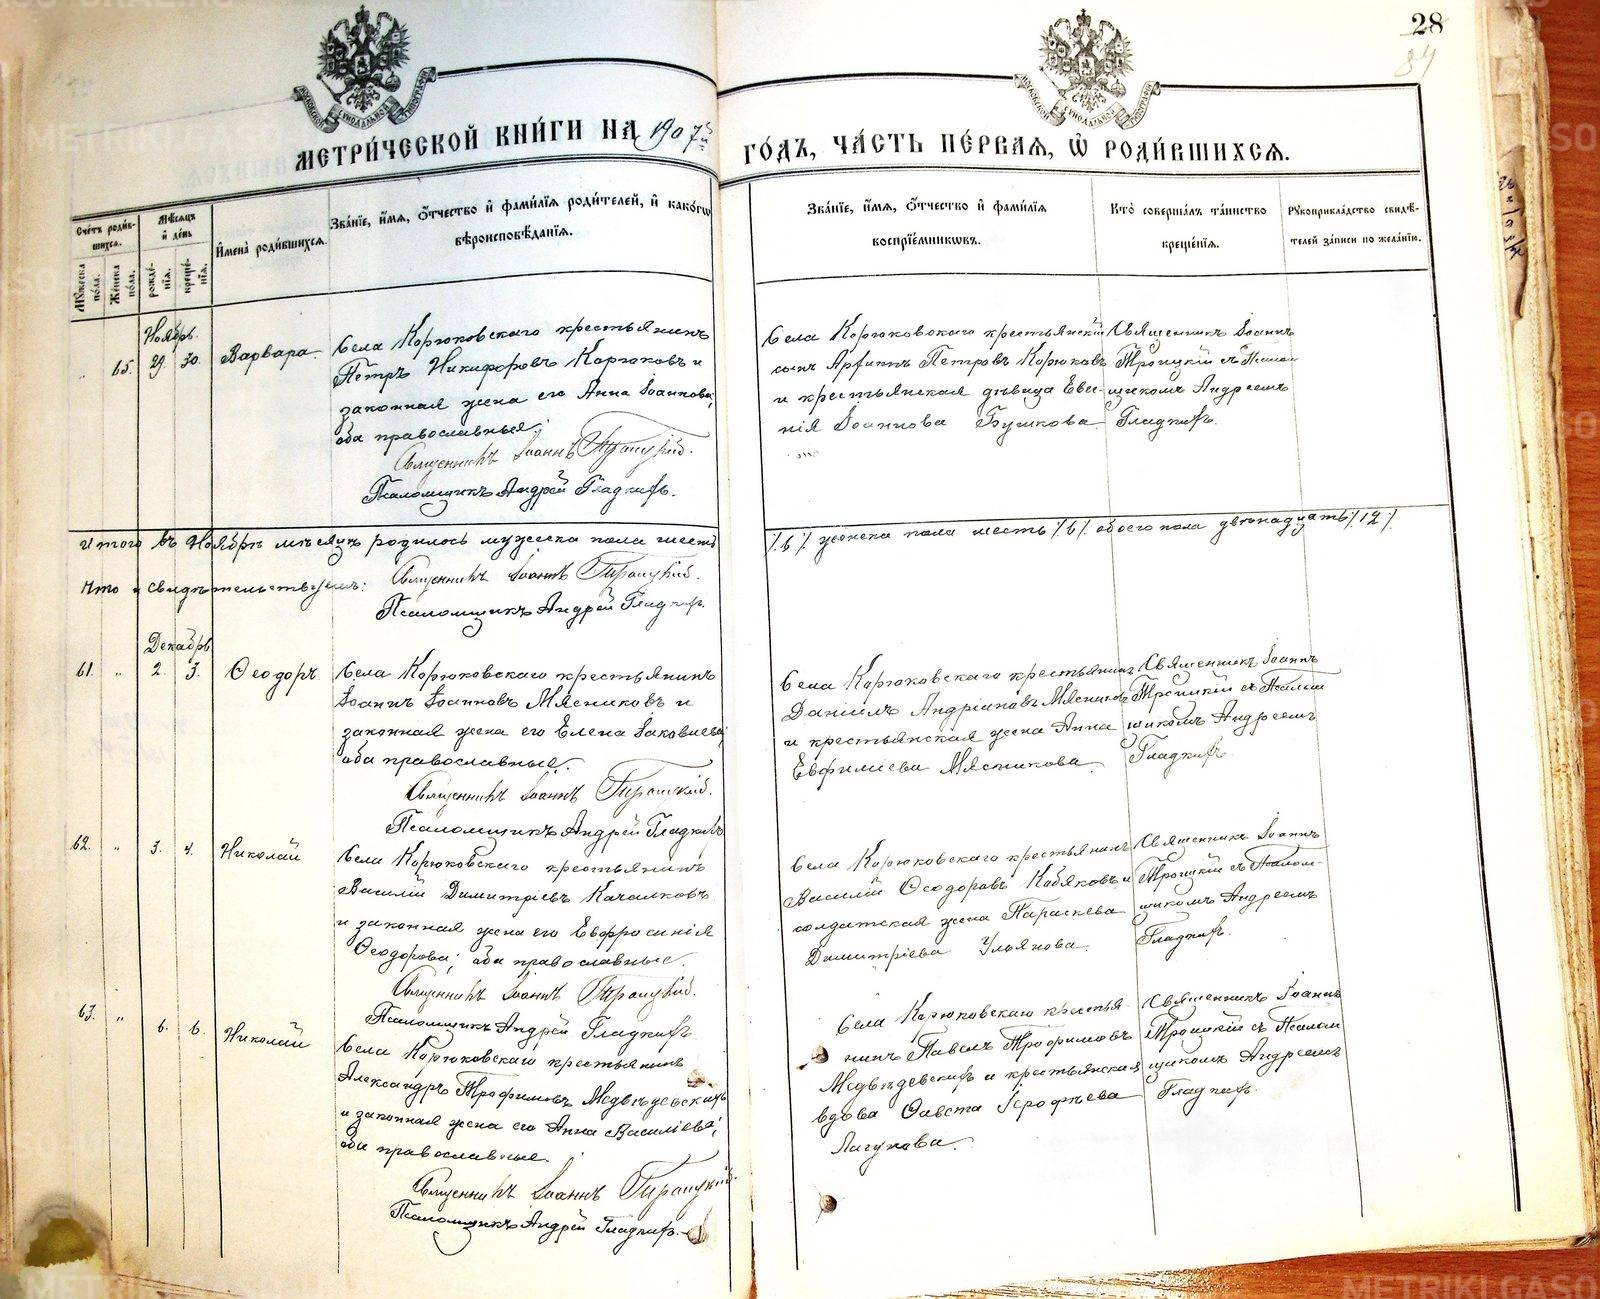 28
84
МЕТРИ́ЧЕСКОЙ КНИ́ГИ НА 1907й
ГО́ДЪ, ЧА́СТЬ ПЕ́РВАЯ, Ѡ҆ РОДИ́ВШИХСЯ.
Сче́тъ роди́в-
шихся.
Мꙋ́жеска по́ла.
Же́нска по́ла.
Мѣ́сяцъ и҆ де́нь
рожде́-нїя.
креще́-нїя.
И҆мена̀ роди́вшихся.
Зва́нїе, и҆́мя, ѻ҆́тчество и҆ фами́лїя роди́телей, и҆ како́гѡ
вѣроисповѣ́данїя.
Зва́нїе, и҆́мя, ѻ҆́тчество и҆ фами́лїя
воспрїе́мникѡвъ.
Кто̀ соверша́лъ та́инство
креще́нїя.
Рꙋкоприкла́дство свидѣ́-
телей за́писи по жела́нїю.
Ноябрь.
" 65. 29. 30. Варвара
Села Корюковскаго крестьянинъ
Петръ Никифоровъ Корюковъ и
законная жена его Анна Іоаннова;
оба православные.
Священникъ Іоаннъ Троицкій.
Псаломщикъ Андрей Гладкихъ.
Села Корюковскаго крестьянскій
сынъ Арфипъ Петровъ Корюковъ
и крестьянская дѣвица Евге-
нія Іоаннова Бушкова.
Священникъ Іоаннъ
Троицкій съ Псалом
щикомъ Андреемъ
Гладкихъ.
Итого въ Ноябрѣ мѣсяцѣ родилось мужеска пола шесть
/6/ женска пола шесть /6/ обоего пола двѣнадцать /12/.
Что и свидѣтельствуемъ:
Священникъ Іоаннъ Троицкій.
Псаломщикъ Андрей Гладкихъ.
Декабрь
61. " 2. 3. Ѳеодоръ
Села Корюковскаго крестьянинъ
Іоаннъ Іоанновъ Мясниковъ и
законная жена его Елена Іаковлева;
оба православные.
Священникъ Іоаннъ Троицкій.
Псаломщикъ Андрей Гладкихъ
Села Корюковскаго крестьянинъ
Даніилъ Андріановъ Мясниковъ
и крестьянская жена Анна
Евфимиева Мясникова.
Священникъ Іоаннъ
Троицкій съ Псалом
щикомъ Андреемъ
Гладкихъ
62. " 3. 4. Николай
Села Корюковскаго крестьянинъ
Василій Димитріевъ Качалковъ
и законная жена его Евфросинія
Ѳеодорова; оба православные.
Священникъ Іоаннъ Троицкій.
Псаломщикъ Андрей Гладкихъ
Села Корюковскаго крестьянинъ
Василій Ѳеодоровъ Кобяковъ и
солдатская жена Параскева
Димитріева Ульянова.
Священникъ Іоаннъ
Троицкій съ Псалом-
щикомъ Андреемъ
Гладкихъ.
63. " 6. 6. Николай
Села Корюковскаго крестьянинъ
Александръ Трофимовъ Медвѣдевскихъ
и законная жена его Анна Василіева;
оба православные.
Священникъ Іоаннъ Троицкій.
Псаломщикъ Андрей Гладкихъ.
Села Корюковскаго крестья-
нинъ Павелъ Трофимовъ
Медвѣдевскихъ и крестьянская
вдова Ѳавста Іерофѣева
Лагунова.
Священникъ Іоаннъ
Троицкій съ Псалом
щикомъ Андреемъ
Гладкихъ.